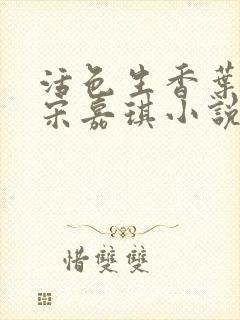 活色生香葉
宋嘉琪小說
惜雙雙